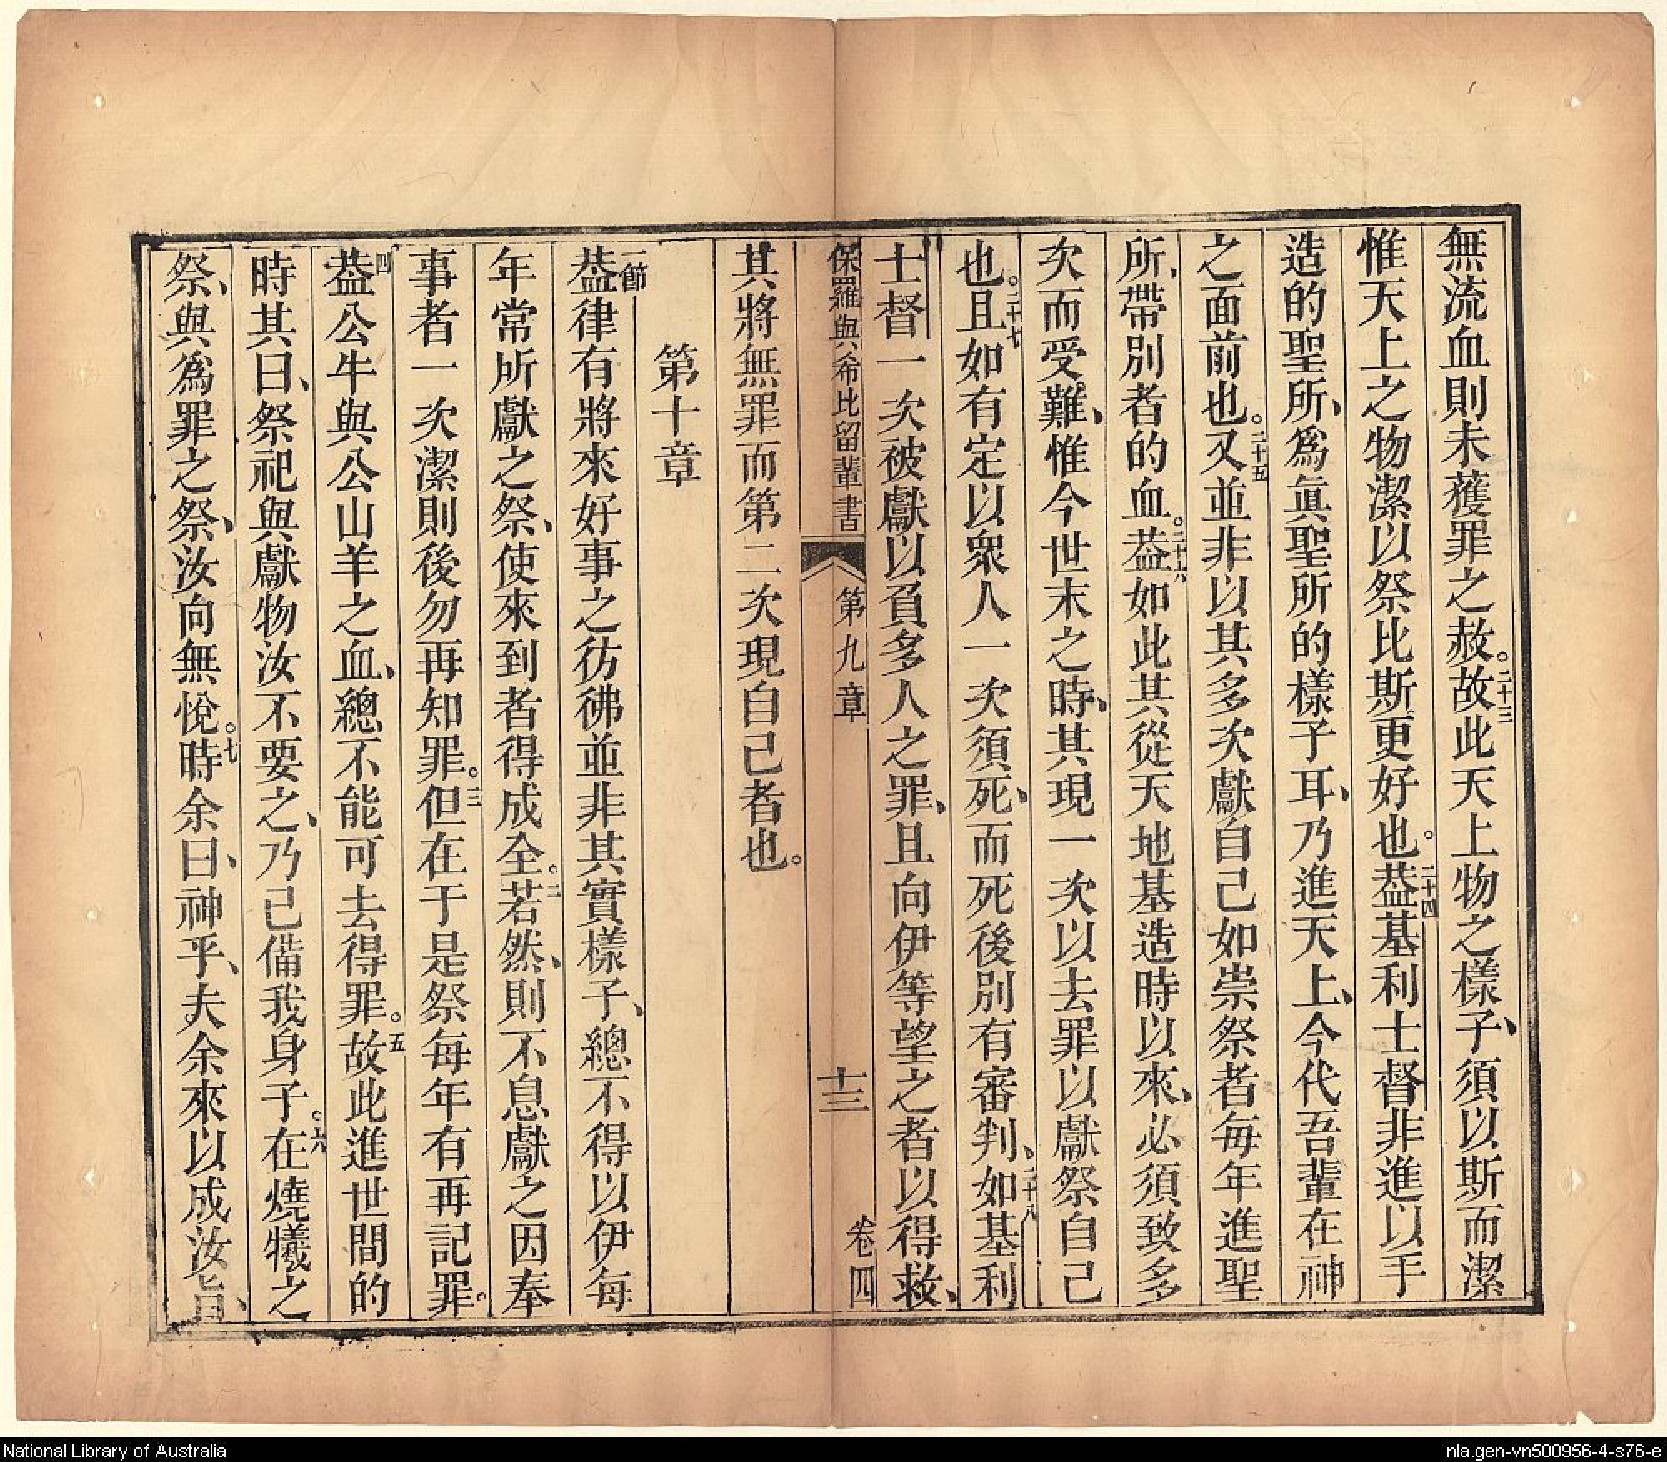 無流血則未蒦罪之赦。二十三故此天上物之樣子、須以斯而潔
惟天上之物潔以祭比斯更好也。二十四葢基利士督非進以手
造的聖所、爲眞聖所的樣子耳、乃進天上、今代吾輩在神
之面前也。二十五又並非以其多次獻自己如崇祭者每年進聖
所、帶別者的血。二十六葢如此其從天地基造時以來、必須致多
次而受難、惟今世末之時、其現一次以去罪以獻祭自己
也。二十七且如有定以衆人一次須死、而死後別有審判、二十八如基利
士督一次被獻以負多人之罪、且向伊等望之者以得救、
保羅與希比留輩書 第九章 十三 卷四
其將無罪而第二次現自己者也。
第十章
一節葢律有將來好事之彷彿並非其實樣子、總不得以伊每
年常所獻之祭、使來到者得成全。二若然、則不息獻之因奉
事者一次潔則後勿再知罪。三但在于是祭每年有再記罪。
四葢公牛與公山羊之血、總不能可去得罪。五故此進世間的
時其曰、祭祀與獻物汝不要之、乃己備我身子。六在燒犧之
祭、與爲罪之祭、汝向無悅。七時余曰、神乎、夫余來以成汝旨、
National Library of Australia
nla.gen-vn500956-4-s76-e